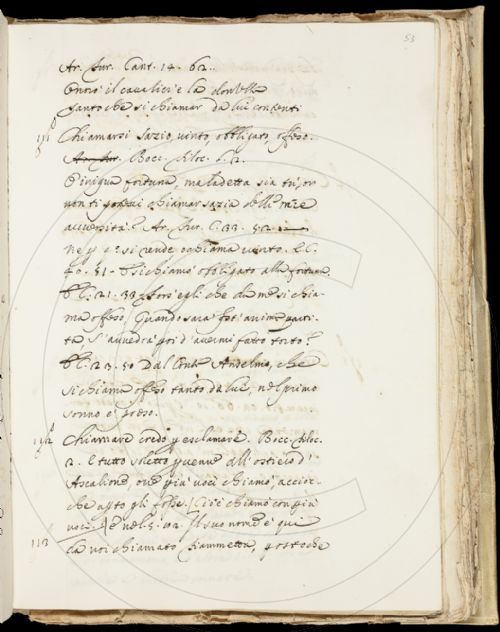 53
Ar. fur. Cant. 14. 62.
Onora il cavalier e la donzella
tanto che si chiamar da lui contenti
Chiamarsi sazio, vinto, obbligato, offeso.
Ar. fur. Bocc. filoc. l. 2.
O iniqua fortuna, maladetta sia tu, or
non ti potevi chiamar sazia delle mie
avversità? Ar. fur. C. 33. 52.
si rende o chiama vinto. E C.
40. 51. si chiama obbligato alla fortuna
E C. 21. 33. fors'egli che di me si chia-
ma offeso, Quando sarà
ta, S'avvedrà poi d'avermi fatto torto?
E C. 23. 50 Dal Conte Anselmo, che
si chiama offeso tanto da lui, nel primo
sonno è preso.
Chiamare credo p esclamare. Bocc. filoc.
2. E tutto soletto pervenne all'ostiero d'
Ascalione, ove più voci chiamò, acciò-
che aperto gli fosse. Cioè chiamò con più
voci. E nel Il suo nome è qui
113 da noi chiamato Fiammetta, postoche